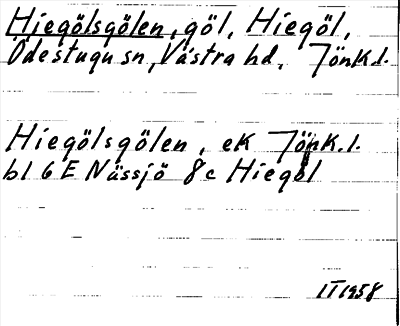 Hiegölsgölen, göl, Hiegöl,
Ödestugu sn, Västra hd, Jönk.l.
Hiegölsgölen, ek Jönk.l.
bl 6E Nässjö 8c Hiegöl
IT 1958